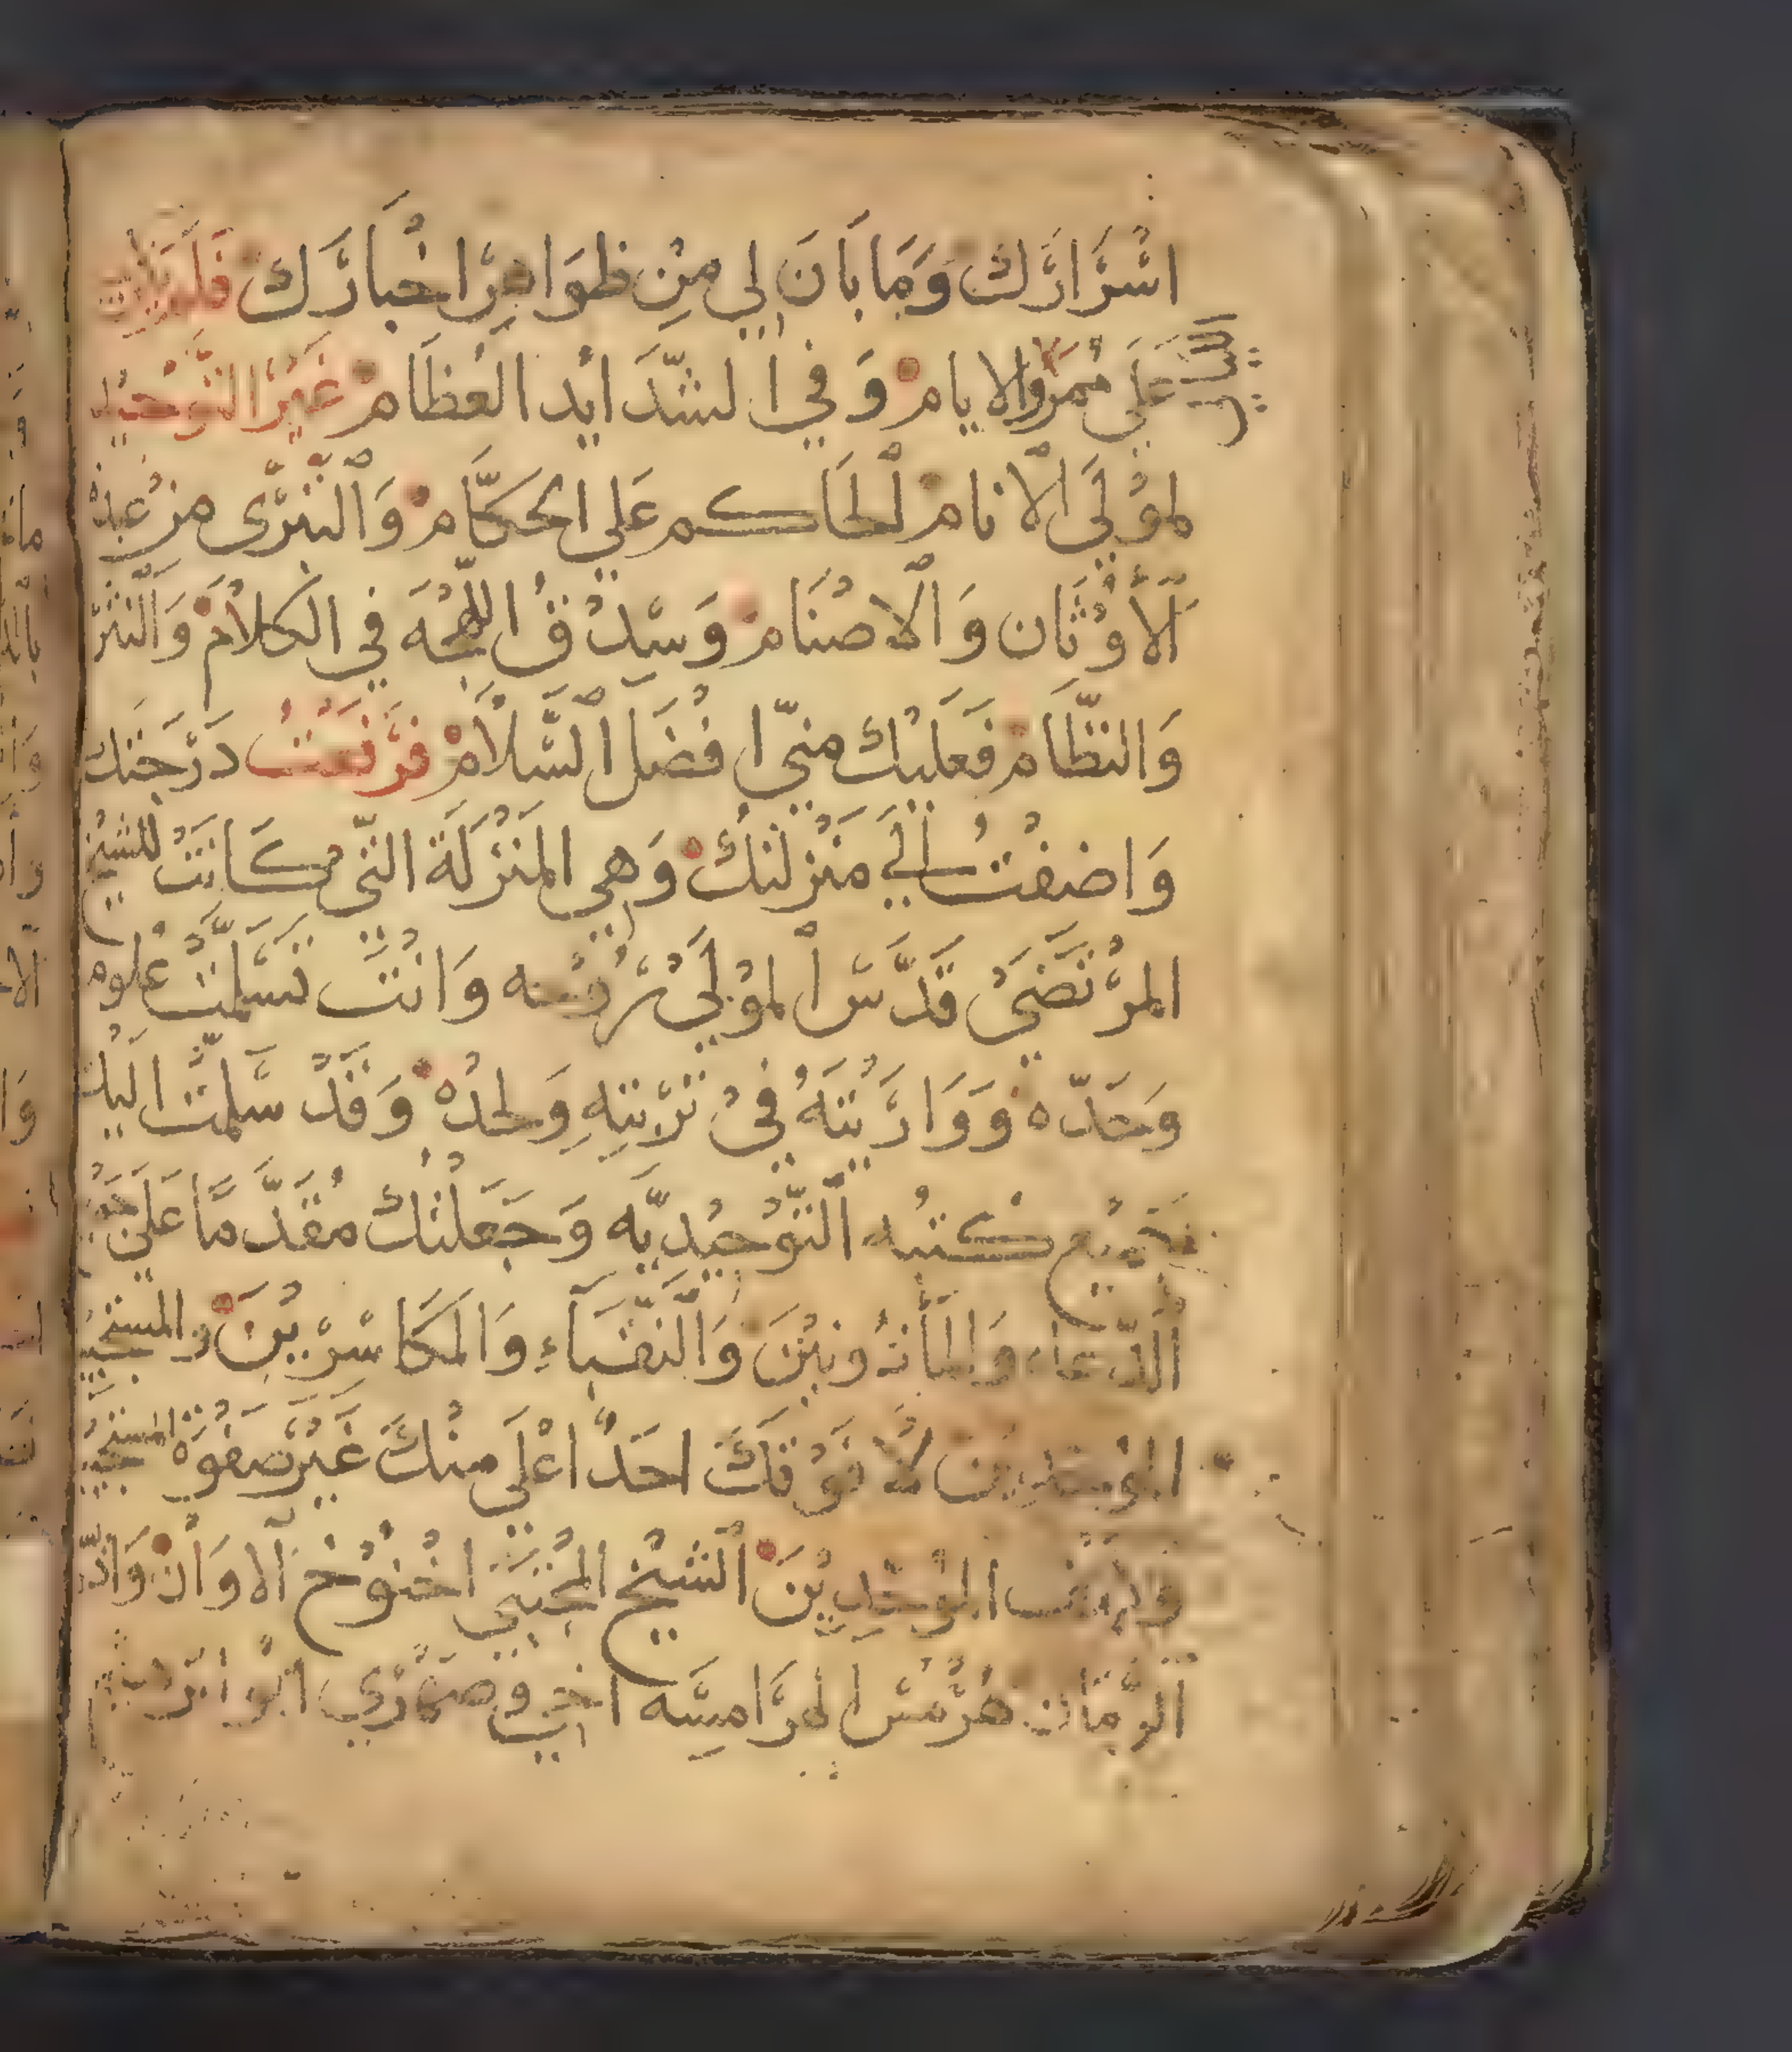 اسْرَارَكْ وَمَا بَانَ لِي مِنْ ظَوَاهِرِ اخْبَارَكْ فَلَمْ
عَلَى مُمَرِّ الايامْ وَفِي الشَّدَايد العُظَامْ غَيْرَ التَّوْحِيْد
لمَوْلَى الْانامْ الْحَاكم عَلي الحكَّامْ وَالتَّبَرِّى من عبدة
اَلْاَوْثَان وَالْاصْنَامْ وَسِدْقُ اللهْجَه فِي الكَلَامْ وَالنَثْرْ
وَالنظَّامْ فَعَلَيْكْ منِّي افْضَل السَّلَامْ فَرَفَعْتُ دَرَجَتك
وَاضفْتُ الَي مَنْزلتكْ وَهي المَنْزلَة التِّي كَانَتْ للشيْخ
المرْتَضَى قَدَّسَ الْمَوْلَى رُوْحه وَانْتَ تسَلَّمْتَ عُلومه
وَحَدّه وَوَارَيْتَهُ فِي تُرْبَتِهِ وَلحدُهْ وَقَدْ سَلَّمْتُ اليْك
جَمِيْع كْتبُه التَّوْحِيْدِيَّه وَجَعَلْتُكْ مُقَدَّمًا عَلَى جَمِيْع
الدّعاه وَالمَأْذُونِيْنَ وَالنُّقَبَاءِ وَالمَكَاسِرِيْنَ والمستجيبين
الموحدين لا فَوْقَكَ احَدٌ اعْلَي منْكَ غَيْر صَفْوَة المستجيبين
وكهف الموحّدِيْنَ الشيْخ المُجْتَبَي اخْنُوْخ الاوَانْ وَادْرِيْس
الزَّمَان هُرْمُس الهَرَامِسَه اخي وَصهْرِي ابُو ابْرَاهيم